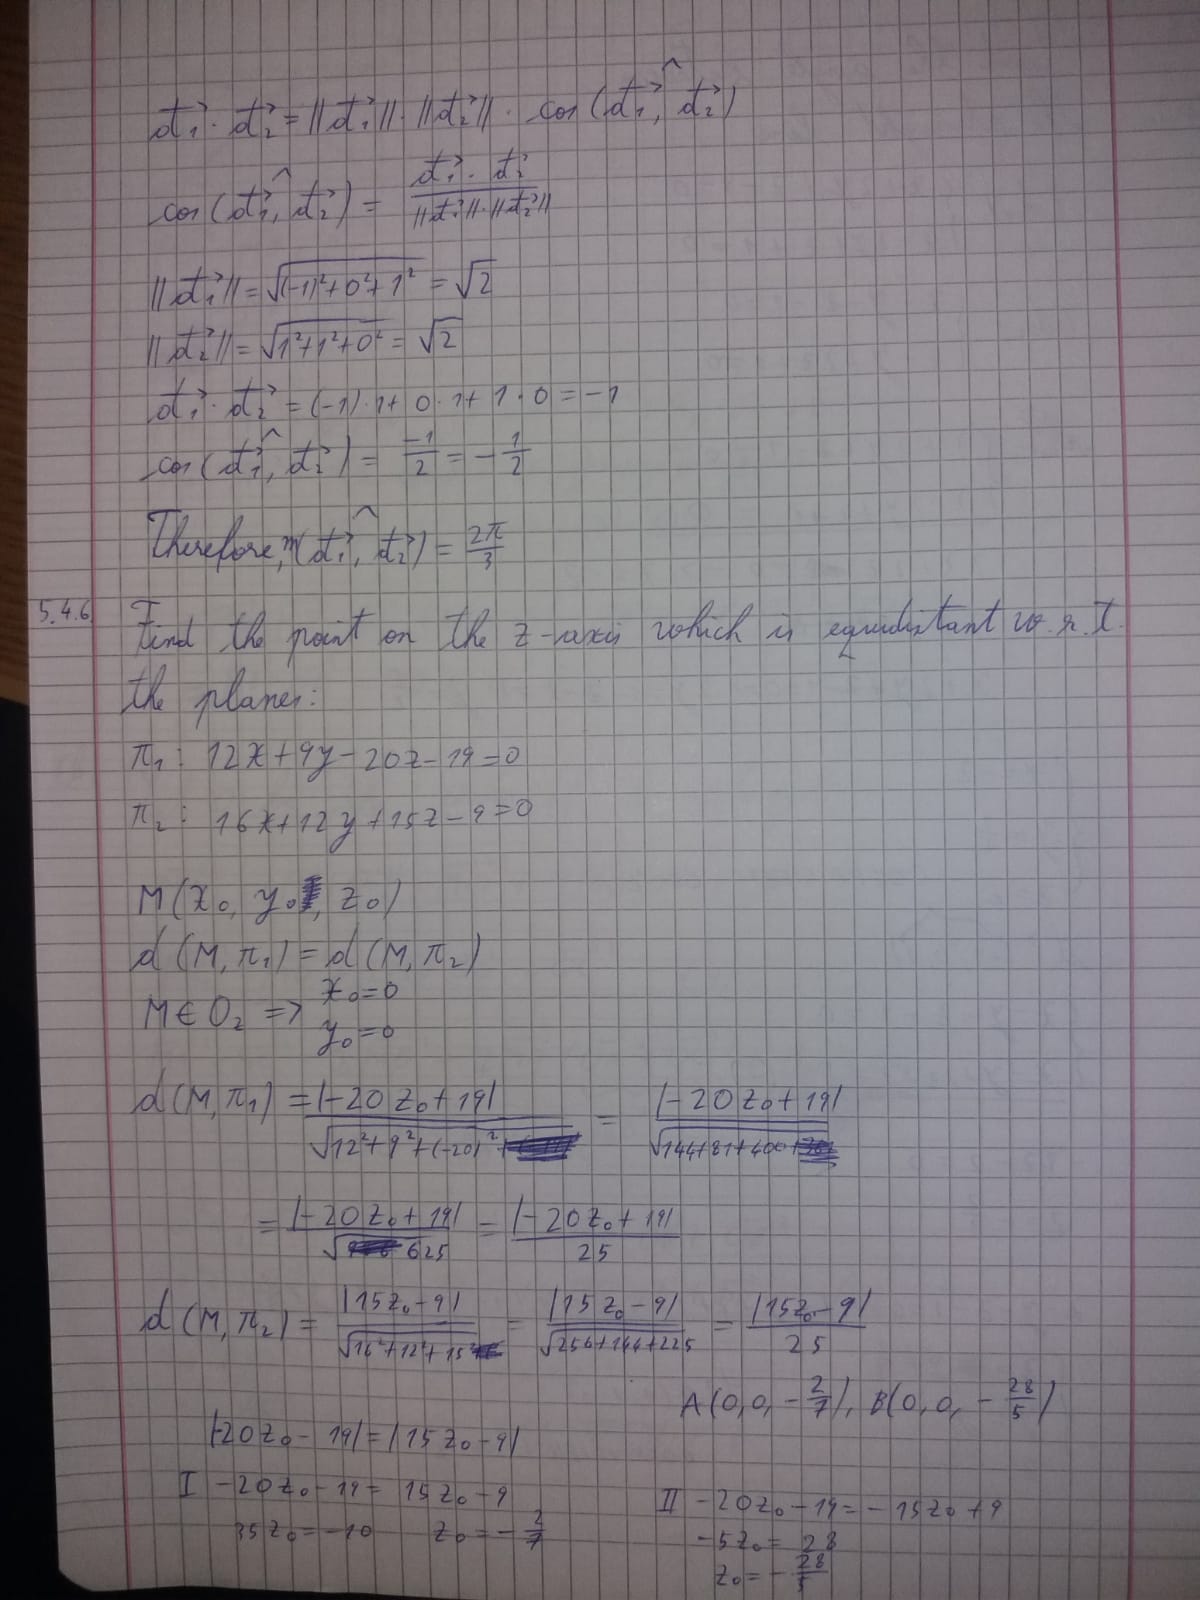 d₁⃗ · d₂⃗ = ||d₁⃗|| · ||d₂⃗|| · cos(d₁⃗,^ d₂⃗)
cos(d₁⃗,^ d₂⃗) = (d₁⃗ · d₂⃗)/(||d₁⃗|| · ||d₂⃗||)
||d₁⃗|| = √((-1)²+0²+1²) = √2
||d₂⃗|| = √(1²+1²+0²) = √2
d₁⃗ · d₂⃗ = (-1)·1+ 0·1+ 1·0 = -1
cos(d₁⃗,^ d₂⃗) = -1/2 = -1/2
Therefore, m(d₁⃗,^ d₂⃗) = 2π/3
5.4.6 Find the point on the z-axis which is equidistant w.r.t.
the planes:
π₁: 12x+9y-20z-19=0
π₂: 16x+12y+15z-9=0
M(x₀, y₀, z₀)
d(M,π₁) = d(M,π₂)
M∈Oz => x₀=0
y₀=0
d(M,π₁) = |-20z₀+19|/√(12²+9²+(-20)²+ = |-20z₀+19|/√(144+81+400+
= |-20z₀+19|/√625 = |-20z₀+19|/25
d(M,π₂) = |15z₀-9|/√(16²+12²+15²) = |15z₀-9|/√(256+144+225) = |15z₀-9|/25
A(0,0,-2/7), B(0,0,-28/5)
|-20z₀-19|=|15z₀-9|
I -20z₀-19= 15z₀-9
35z₀=-10 z₀=-2/7
II -20z₀-19=-15z₀+9
-5z₀= 28
z₀=-28/5